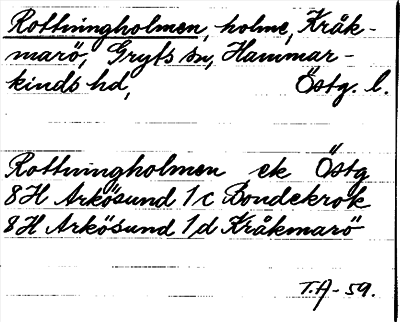 Rottningholmen, holme, Kråk-
marö, Gryts sn, Hammar-
kinds hd, Östg. l.
Rottningholmen ek Östg
8H Arkösund 1/c Bondekrok
8H Arkösund 1/d Kråkmarö
T.A-59.